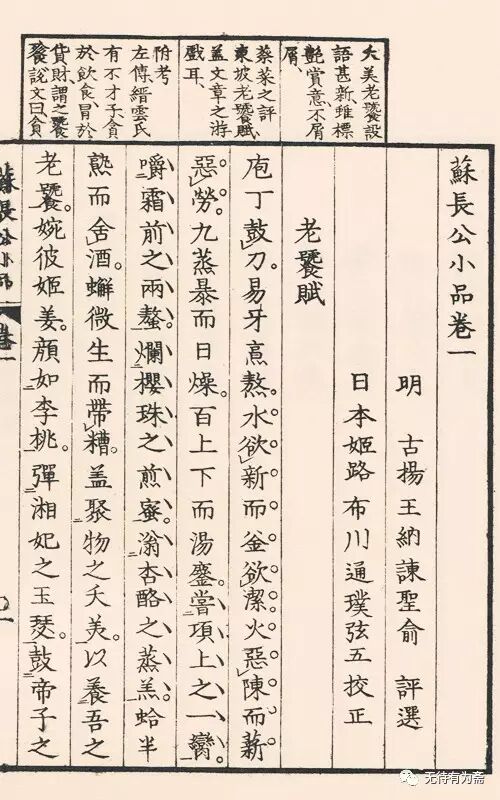 大美老饕設
語甚新、雖標
艷賞意、不屑
屑、
蔡之評
東坡老饕賦
盖文章之游
戲耳、
附考
左傳縉雲氏
有不才子、貪
於飲食、冒於
貨財、謂之饕
餮、說文曰貪
蘇長公小品卷一
明 古揚王納諫聖俞 評選
日本姬路布川通璞弦五挍正
老饕賦
庖丁鼓刀。易牙烹熬。水欲新而釜欲潔。火惡陳而薪
惡勞。九蒸暴而日燥。百上下而湯鏖。嘗項上之一臠。
嚼霜前之兩螯。爛櫻珠之煎蜜。滃杏酪之蒸羔。蛤半
熟而含酒。蠏微生而帶糟。盖聚物之夭美。以養吾之
老饕。婉彼姬姜。顏如李桃。彈湘妃之玉瑟。鼓帝子之
蘇長公小品
卷一
无待有为斋